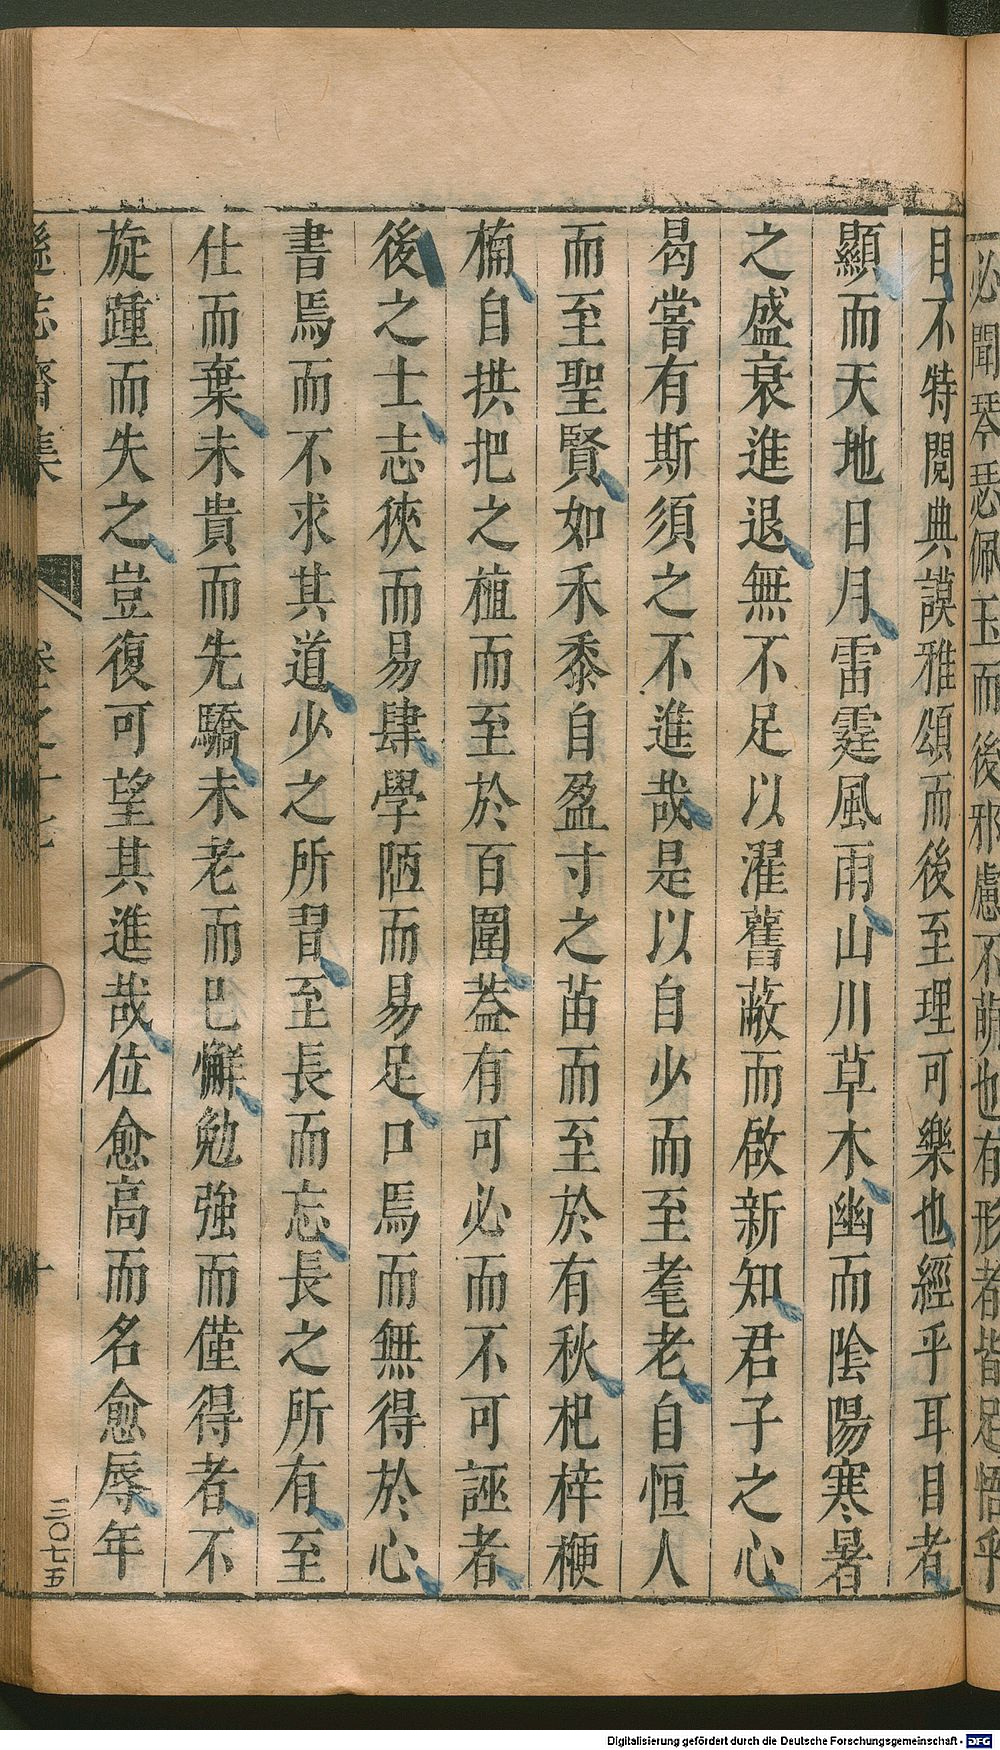 必聞琴瑟佩玉而後邪慮不萌也有形者皆足悟乎
目不特閱典謨雅頌而後至理可樂也經乎耳目者
顯而天地日月雷霆風雨山川草木幽而陰陽寒暑
之盛衰進退無不足以濯舊蔽而啟新知君子之心
曷嘗有斯須之不進哉是以自少而至耄老自恒人
而至聖賢如禾黍自盈寸之苗而至於有秋杞梓楩
楠自拱把之植而至於百圍葢有可必而不可誣者
後之士志狹而易肆學陋而易足口焉而無得於心
書焉而不求其道少之所習至長而忘長之所有至
仕而棄未貴而先驕未老而已懈勉強而僅得者不
旋踵而失之豈復可望其進哉位愈高而名愈辱年
遜志齋集
卷之十七
十
三〇七五
Digitalisierung gefördert durch die Deutsche Forschungsgemeinschaft - DFG